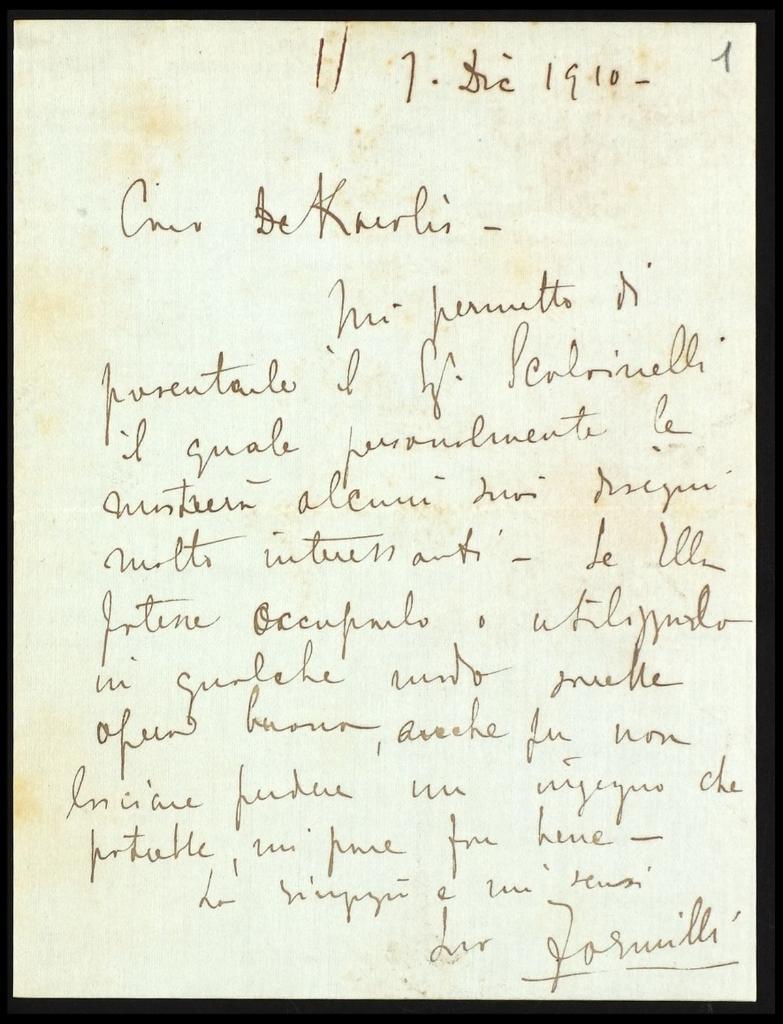 7. Dic 1910 - 1
Caro De Karolis -
Mi permetto di
presentarle il Sg. Scolarinelli
il quale personalmente le
mostrerà alcuni suoi disegni
molto interessanti - Se Ella
potesse occuparlo o utilizzarlo
in qualche modo farebbe
opera buona, anche per non
lasciare perdere un ingegno che
potrebbe, mi pare far bene -
La ringrazio e mi scusi
Suo